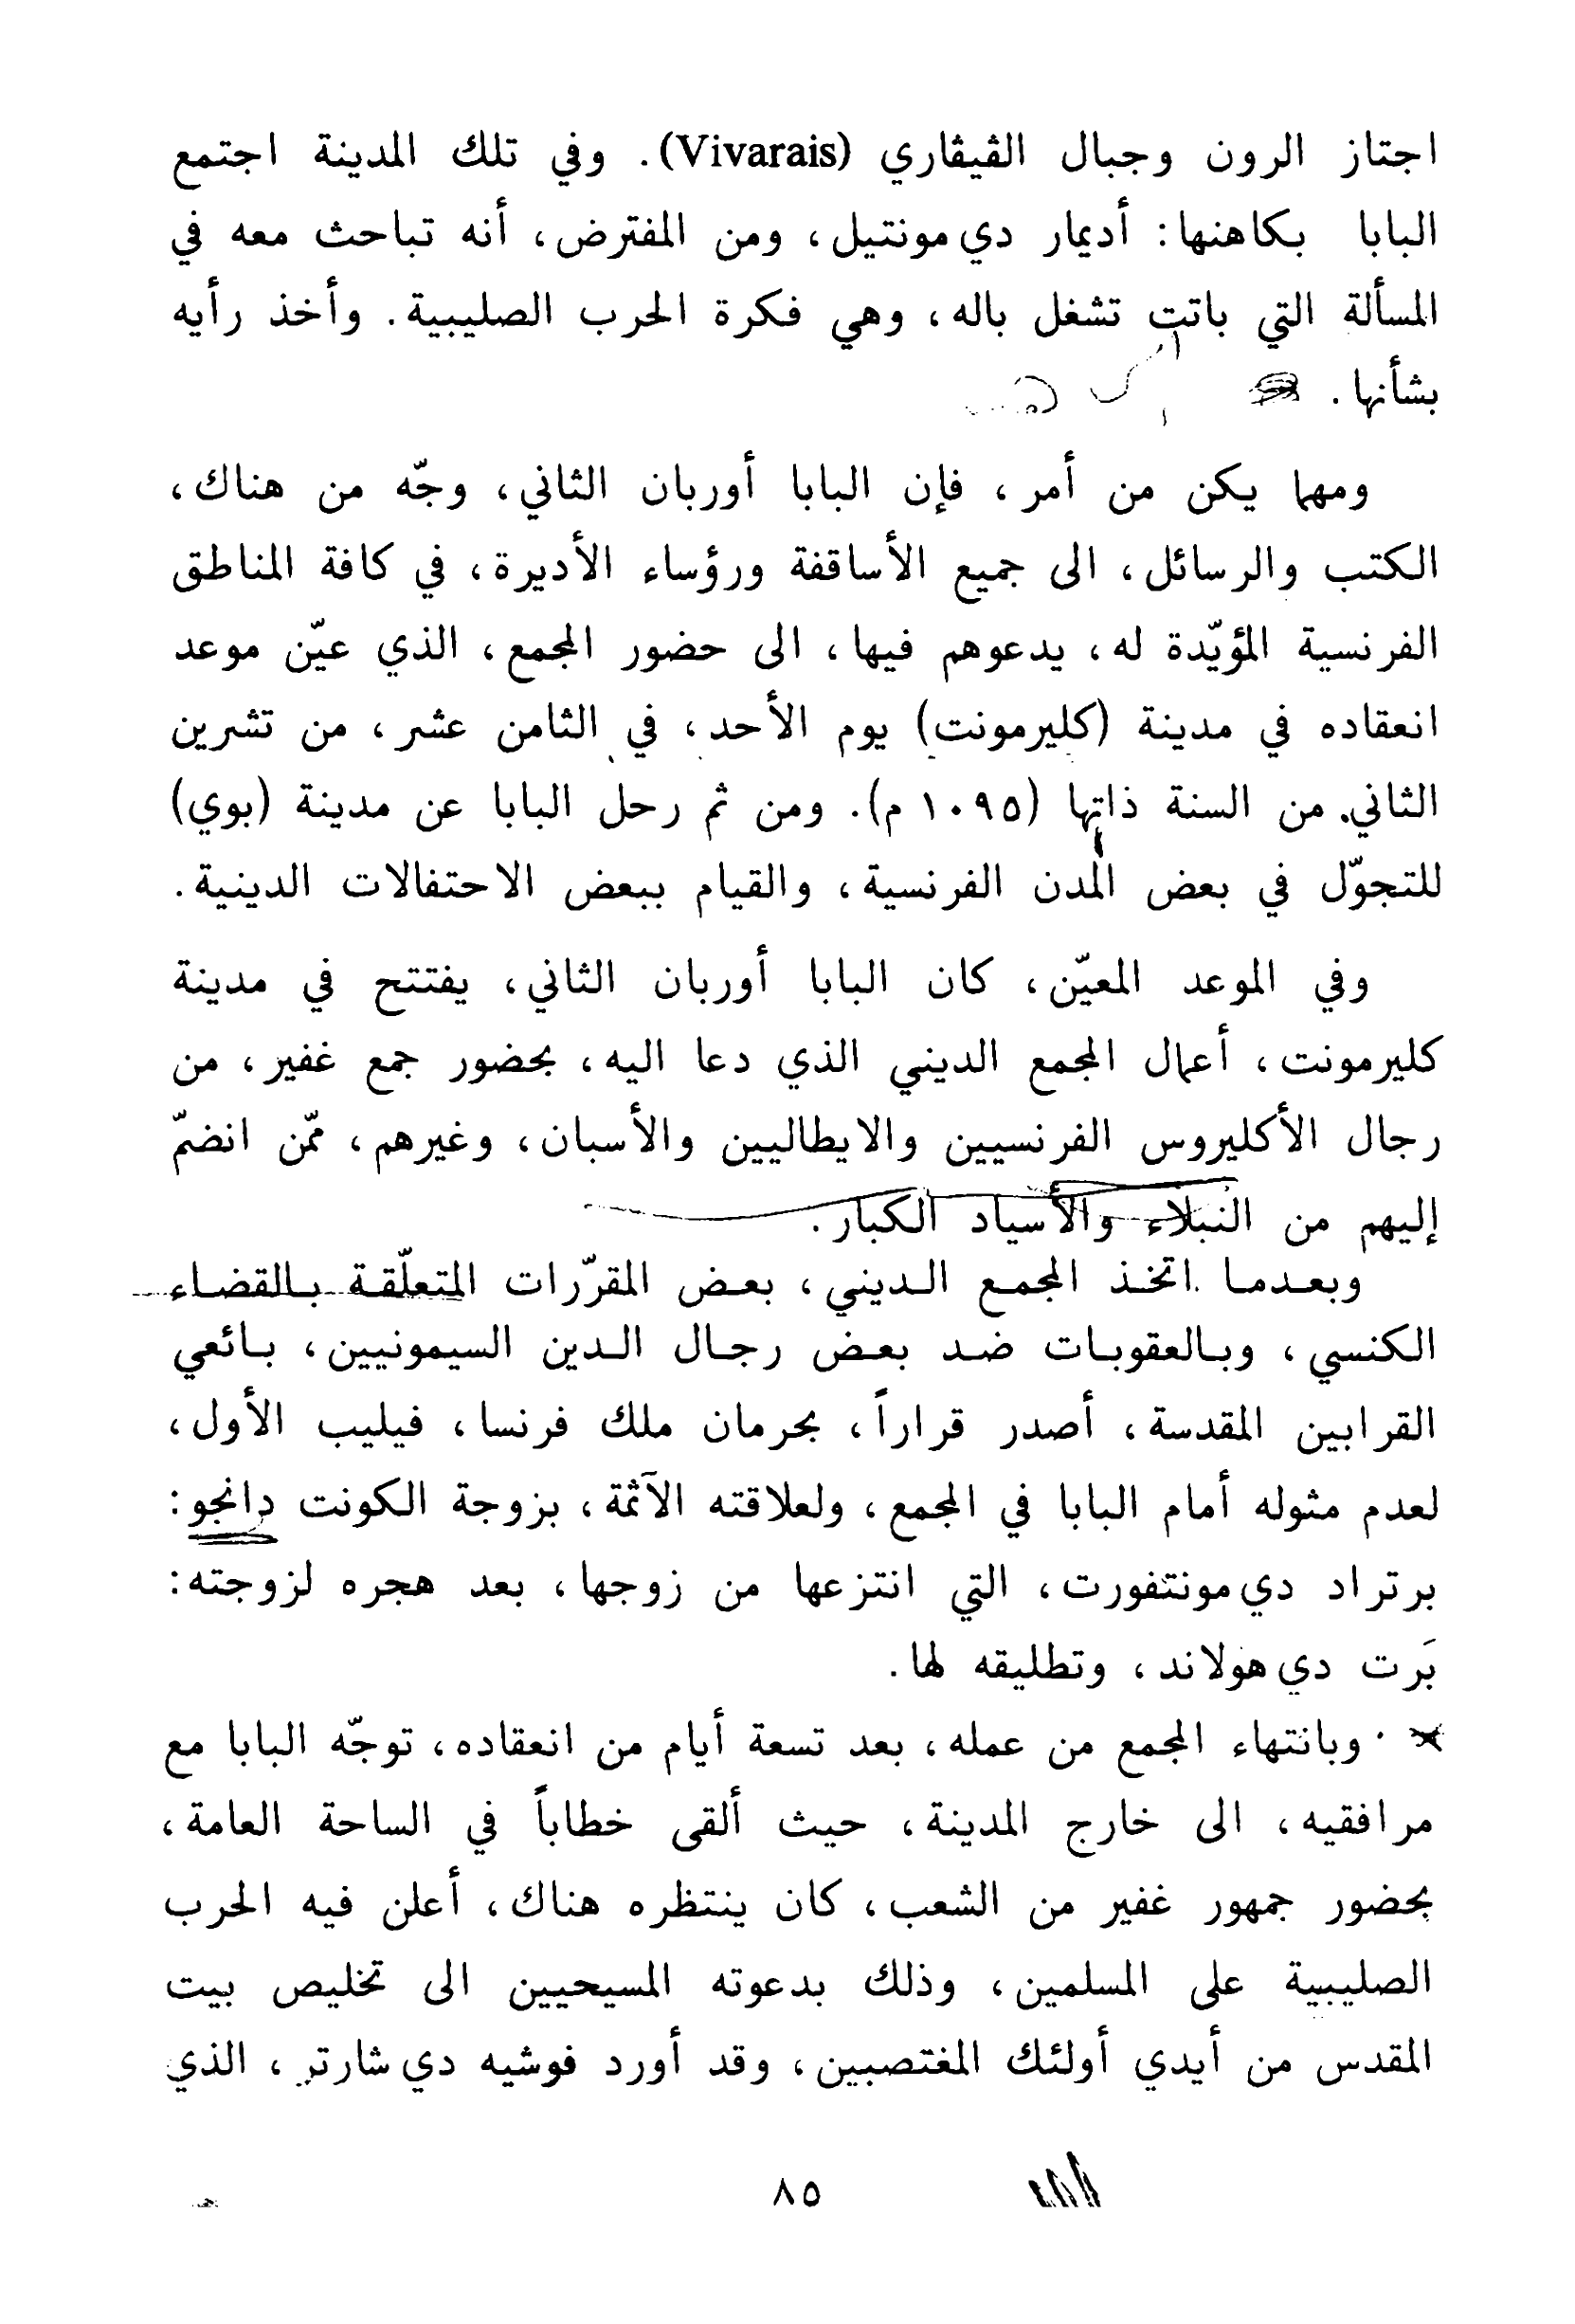 اجتاز الرون وجبال الڤيڤاري (Vivarais). وفي تلك المدينة اجتمع
البابا بكاهنها: أديمار دي مونتيل، ومن المفترض، أنه تباحث معه في
المسألة التي باتت تشغل باله، وهي فكرة الحرب الصليبية. وأخذ رأيه
بشأنها.
ومهما يكن من أمر، فإن البابا أوربان الثاني، وجّه من هناك،
الكتب والرسائل، الى جميع الأساقفة ورؤساء الأديرة، في كافة المناطق
الفرنسية المؤيّدة له، يدعوهم فيها، الى حضور المجمع، الذي عيّن موعد
انعقاده في مدينة (كليرمونت) يوم الأحد، في الثامن عشر، من تشرين
الثاني. من السنة ذاتها (١٠٩٥ م). ومن ثم رحل البابا عن مدينة (بوي)
للتجوّل في بعض المدن الفرنسية، والقيام ببعض الاحتفالات الدينية.
وفي الموعد المعيّن، كان البابا أوربان الثاني، يفتتح في مدينة
كليرمونت، أعمال المجمع الديني الذي دعا اليه، بحضور جمع غفير، من
رجال الأكليروس الفرنسيين والايطاليين والأسبان، وغيرهم، ممّن انضمّ
إليهم من النبلاء والأسياد الكبار.
وبعدما اتخذ المجمع الديني، بعض المقرّرات المتعلّقة بالقضاء
الكنسي، وبالعقوبات ضد بعض رجال الدين السيمونيين، بائعي
القرابين المقدسة، أصدر قراراً، بحرمان ملك فرنسا، فيليب الأول،
لعدم مثوله أمام البابا في المجمع، ولعلاقته الآثمة، بزوجة الكونت دانجو:
برتراد دي مونتفورت، التي انتزعها من زوجها، بعد هجره لزوجته:
بَرت دي هولاند، وتطليقه لها.
وبانتهاء المجمع من عمله، بعد تسعة أيام من انعقاده، توجّه البابا مع
مرافقيه، الى خارج المدينة، حيث ألقى خطاباً في الساحة العامة،
بحضور جمهور غفير من الشعب، كان ينتظره هناك، أعلن فيه الحرب
الصليبية على المسلمين، وذلك بدعوته المسيحيين الى تخليص بيت
المقدس من أيدي أولئك المغتصبين، وقد أورد فوشيه دي شارتر، الذي
٨٥